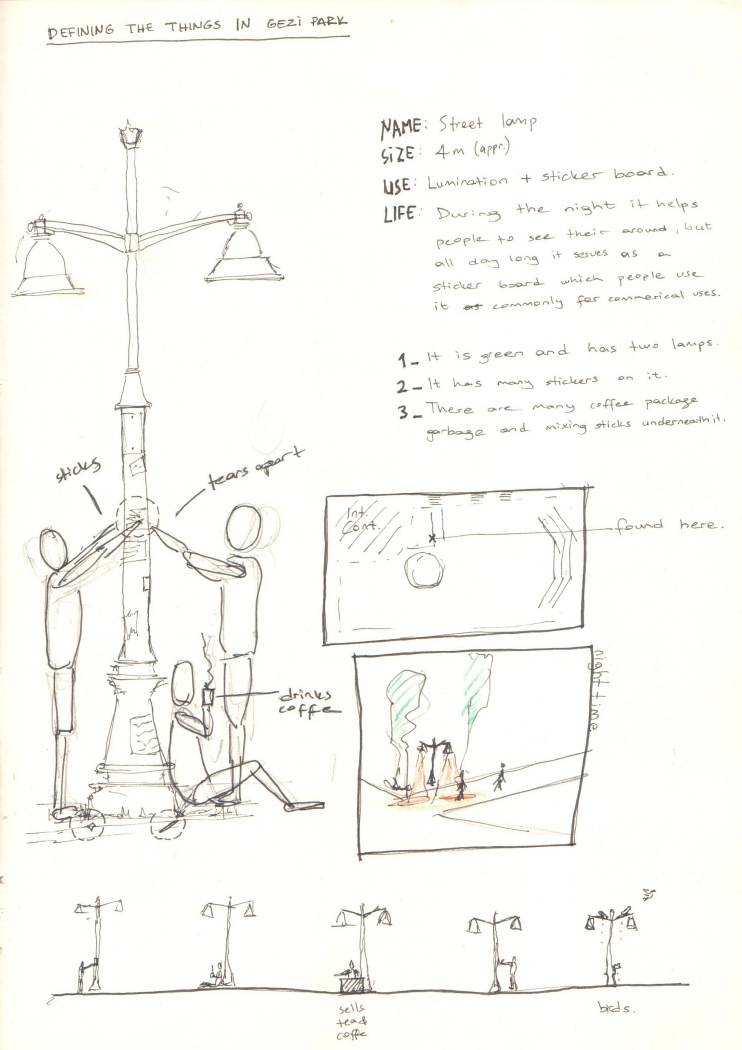 DEFINING THE THINGS IN GEZi PARK
NAME: Street lamp
SiZE: 4m (appr.)
USE: Lumination + sticker board.
LIFE: During the night it helps
people to see their around, but
all day long it serves as a
sticker board which people use
it as commonly for commerical uses.
1_ It is green and has two lamps.
2_ It has many stickers on it.
3_ There are many coffee package
garbage and mixing sticks underneath it.
sticks
tears apart
drinks
coffe
Int.
Cont.
found here.
night time
sells
tea &
coffe
birds.